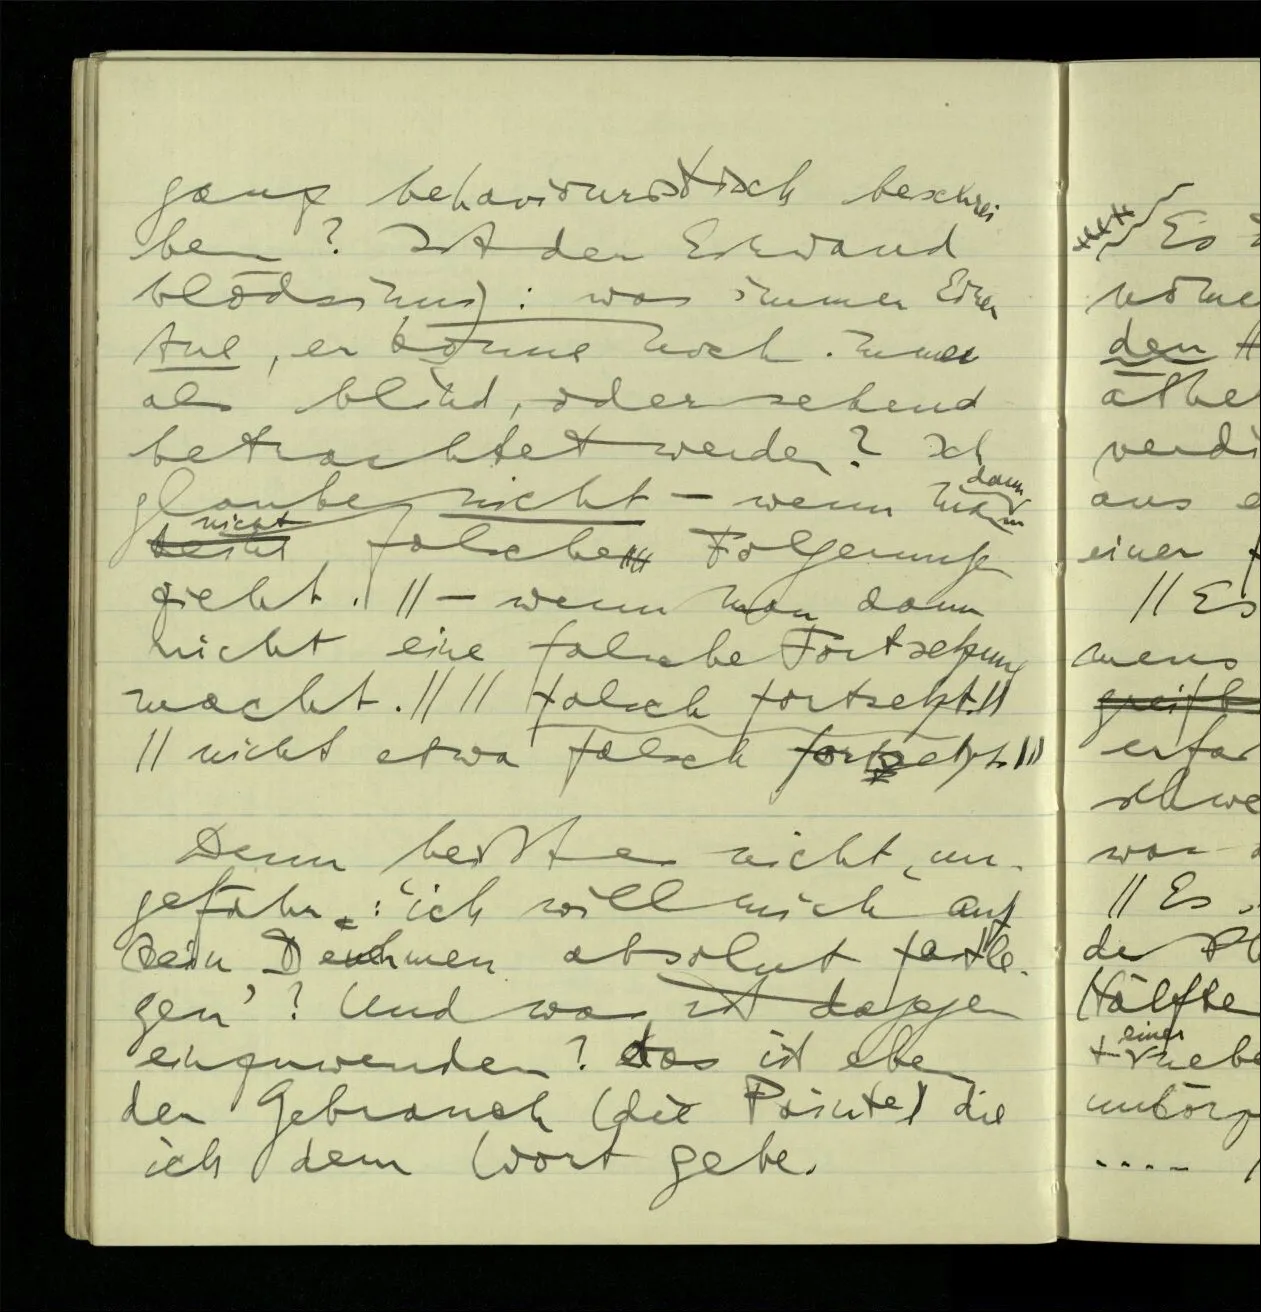 ganz behaviouristisch beschrei
ben? Ist der Einwand
blödsinnig: was immer Einer
tue, er könne noch immer
als blind, oder sehend
betrachtet werden? Ich
glaube nicht – wenn man dann
nicht falsche Folgerung
zieht. // – wenn man dann
nicht eine falsche Fortsetzung
macht. // // falsch fortsetzt. //
// nicht etwa falsch fortsetzt. //
Denn heißt es nicht, un-
gefähr: ‘ich will mich auf
kein Benehmen absolut festle-
gen’? Und was ist dagegen
einzuwenden? das ist eben
der Gebrauch (die Pointe) die
ich dem Wort gebe.
Es
den
aus e
einer
// Es
// Es
Hälfte
einer
....